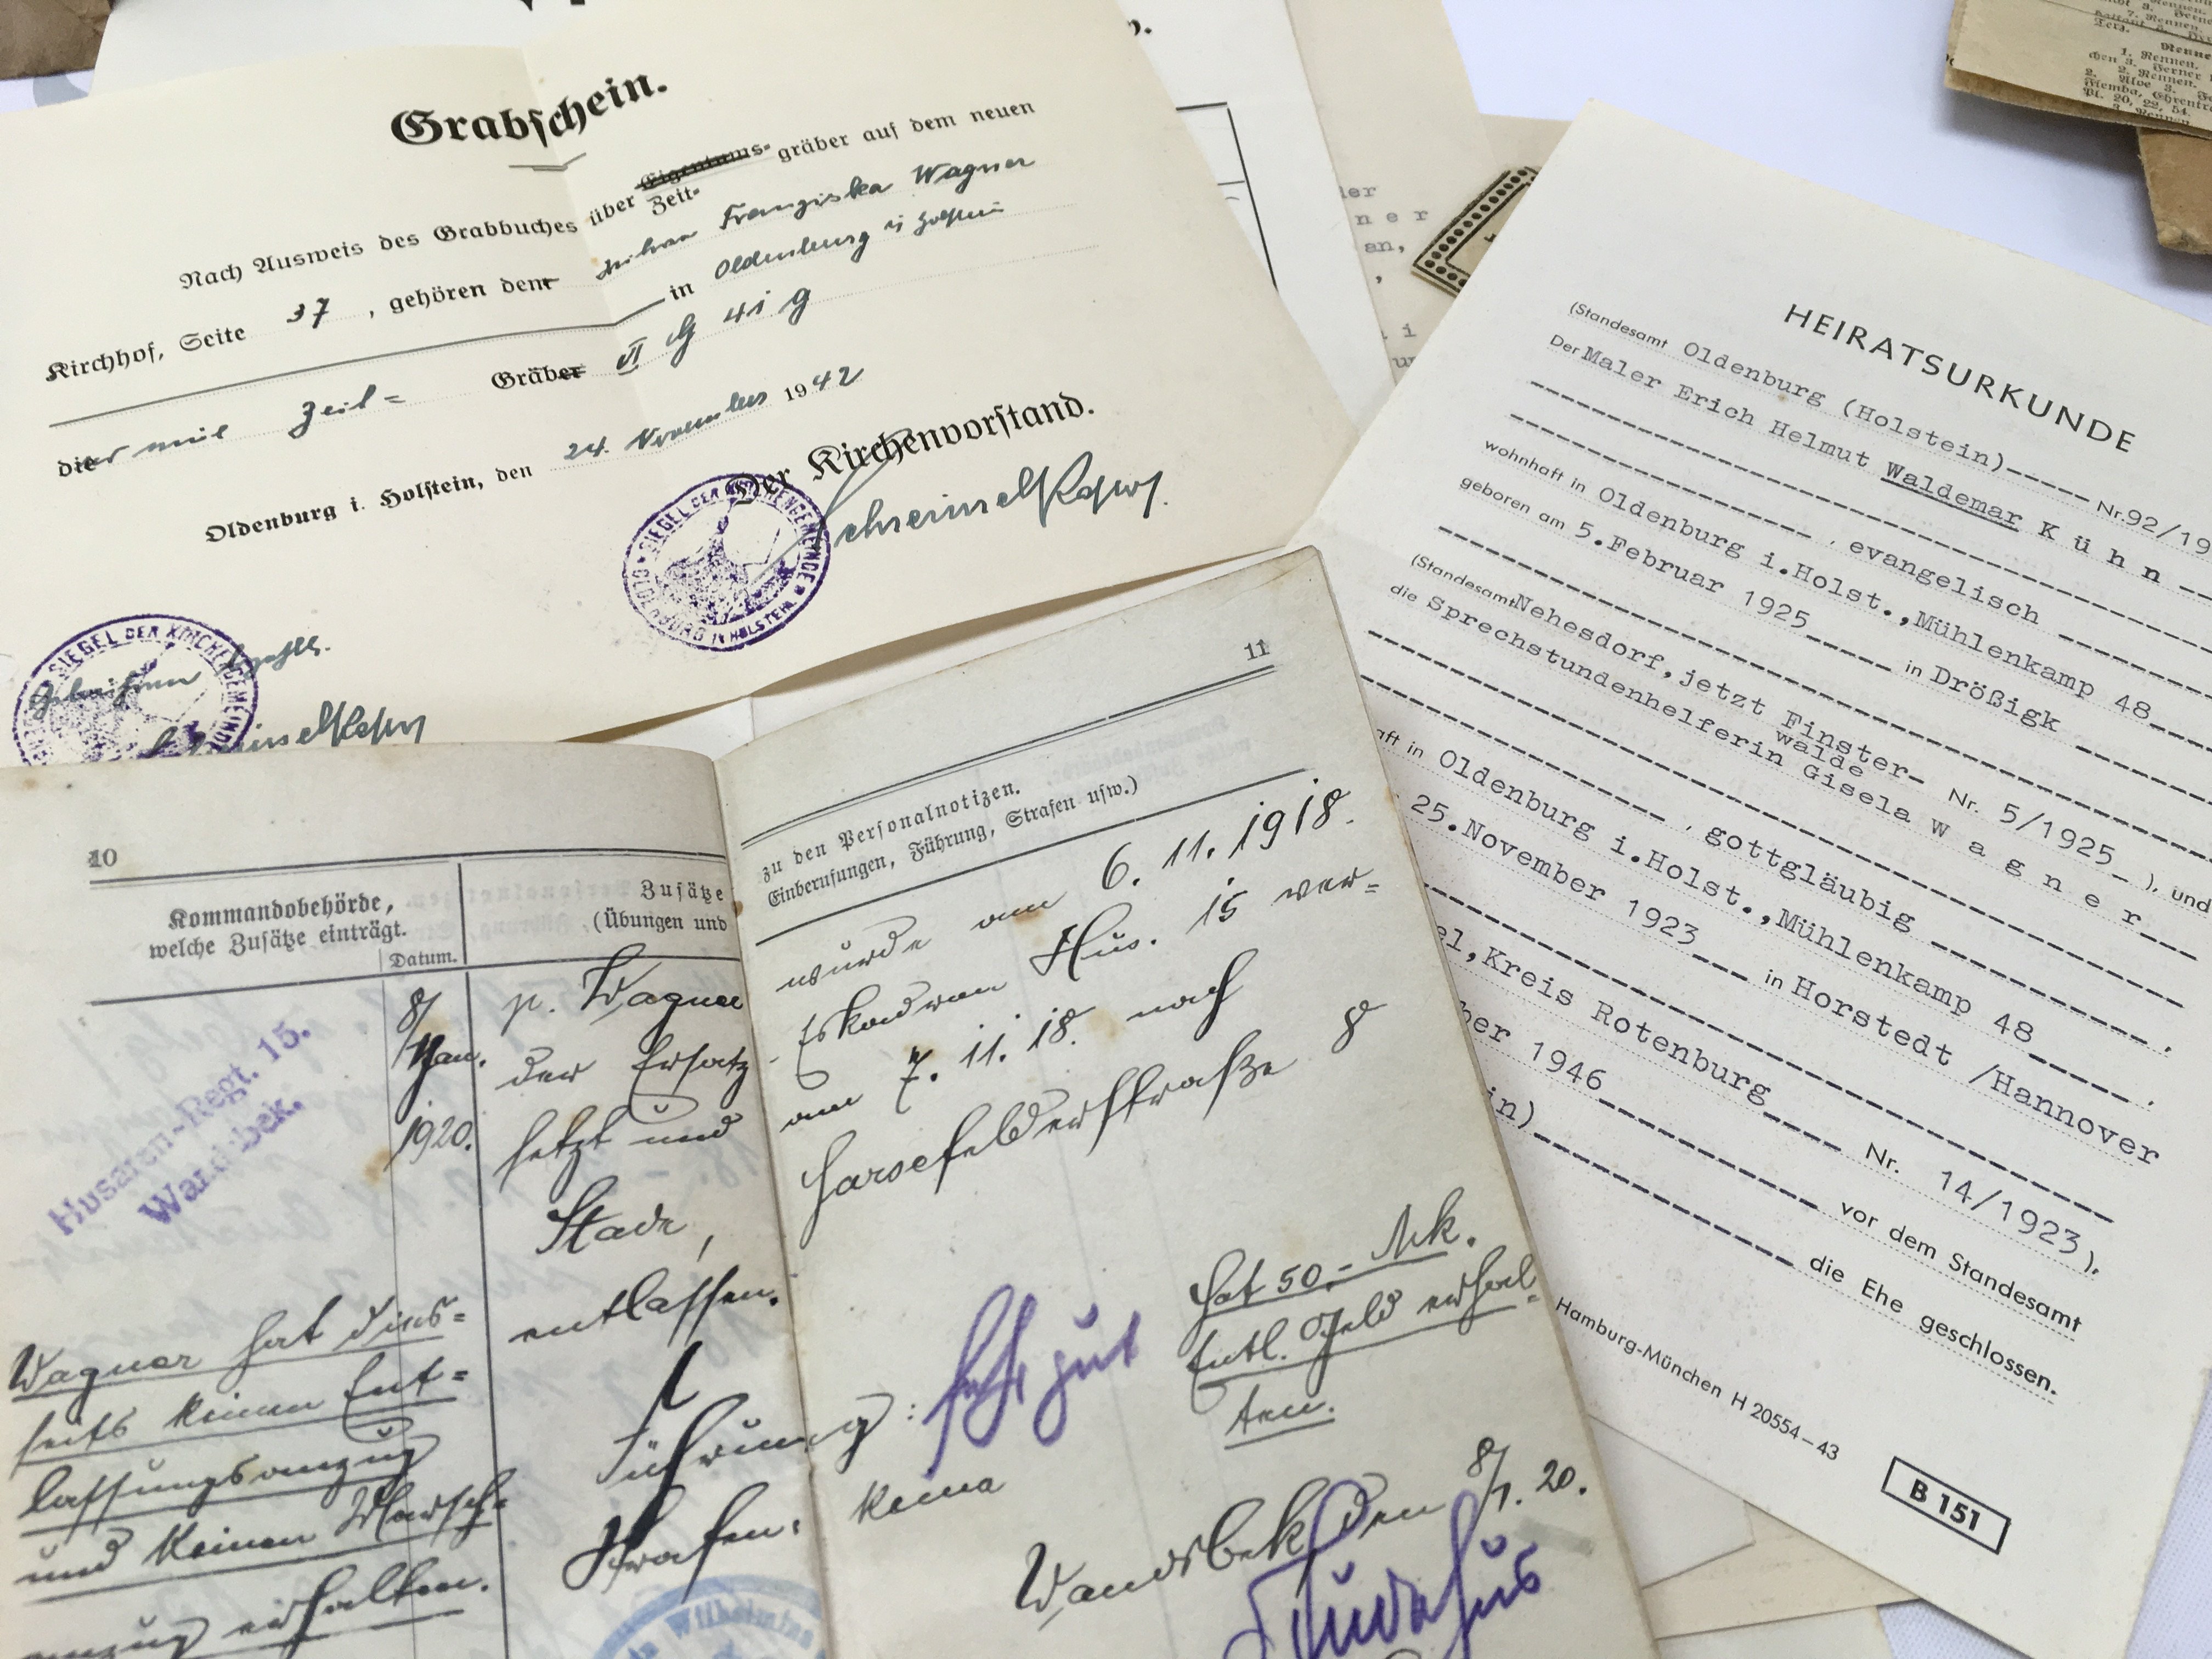 Grabschein.
Nach Ausweis des Grabbuches über Eigentums=
Zeit= gräber auf dem neuen
Kirchhof, Seite 37, gehören dem Franziska Wagner
in Oldenburg i Holstein
die Zeit= Gräber VI G 41 g
Oldenburg i. Holstein, den 24. November 1942
Der Kirchenvorstand.
SIEGEL DER KIRCHENGEMEINDE
OLDENBURG IN HOLSTEIN
SIEGEL DER KIRCHENGEMEINDE
10
Kommandobehörde,
welche Zusätze einträgt.
Datum.
Zusätze
(Übungen und
Husaren-Regt. 15.
Wandsbek.
8/
Jan.
1920.
p. Wagner
der Ersatz
setzt und
Stade,
entlassen.
Führung:
Strafen:
Wagner hat dies=
seits keinen Ent=
lassungsanzug
und keinen Marsch=
anzug erhalten.
Wilhelmina
11
zu den Personalnotizen.
Einberufungen, Führung, Strafen usw.)
wurde am 6. 11. 1918.
Eskadron Hus. 15 ver=
am 7. 11. 18. nach
Harsefelderstraße 8
hat 50,- Mk.
Entl. Geld erhal=
ten.
sehr gut
keine
Wandsbek den 8/1. 20.
HEIRATSURKUNDE
(Standesamt Oldenburg (Holstein) Nr. 92/19
Der Maler Erich Helmut Waldemar Kühn
, evangelisch
wohnhaft in Oldenburg i.Holst., Mühlenkamp 48
geboren am 5.Februar 1925 in Drößigk
(Standesamt Nehesdorf, jetzt Finster-
walde Nr. 5/1925 ), und
die Sprechstundenhelferin Gisela Wagner
, gottgläubig
aft in Oldenburg i.Holst., Mühlenkamp 48 ,
25.November 1923 in Horstedt /Hannover
el, Kreis Rotenburg Nr. 14/1923 ),
ber 1946 vor dem Standesamt
in) die Ehe geschlossen.
Hamburg-München H 20554–43
B 151